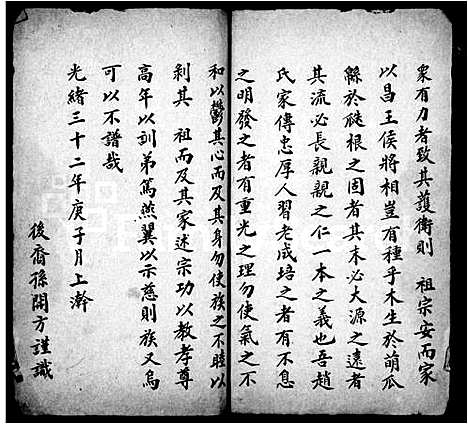 衆有力者致其護衛則　祖宗安而家
以昌王侯將相豈有種乎木生於萌瓜
緜於瓞根之固者其末必大源之遠者
其流必長親親之仁一本之義也吾趙
氏家傳忠厚人習老成培之者有不息
之明發之者有重光之理勿使氣之不
和以鬱其心而及其身勿使族之不睦以
剥其　祖而及其家述宗功以教孝尊
高年以訓弟篤燕翼以示慈則族又烏
可以不譜哉
光緒三十二年庚子月上澣
後裔孫開方謹識